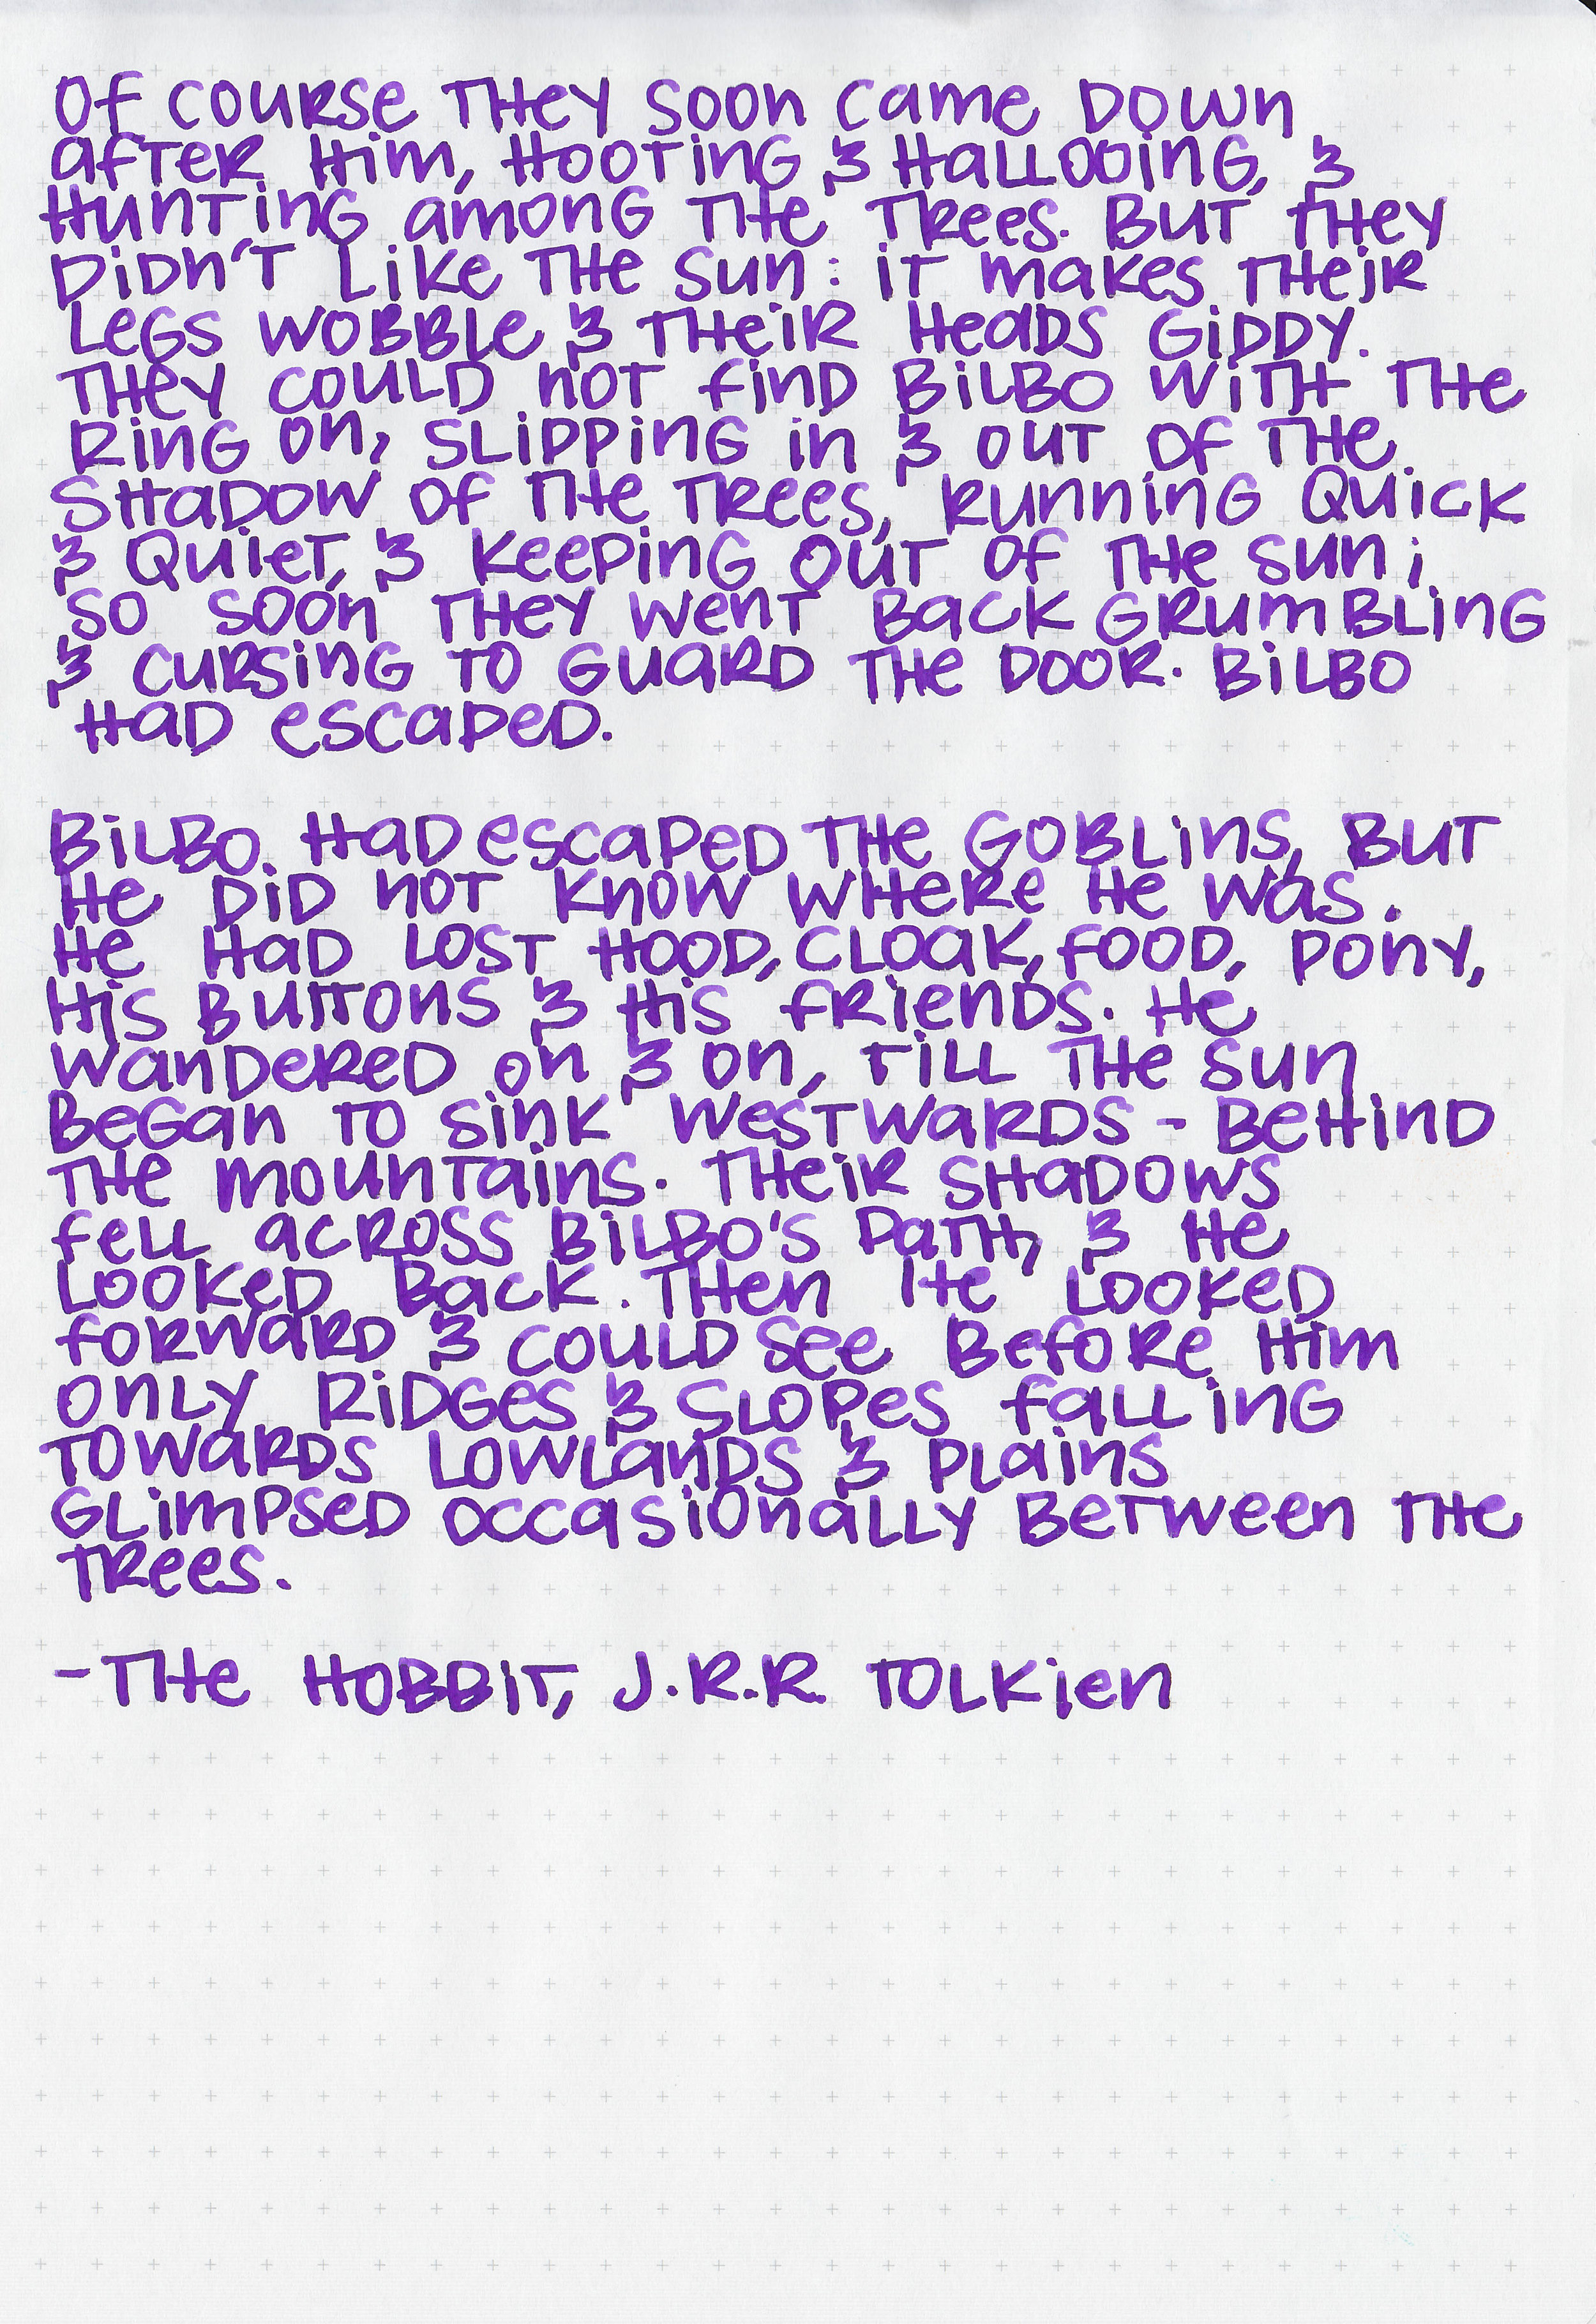 Of course they soon came down
after him, hooting & hallooing, &
hunting among the trees. But they
didn't like the sun: it makes their
legs wobble & their heads giddy.
They could not find Bilbo with the
ring on, slipping in & out of the
shadow of the trees, running quick
& quiet, & keeping out of the sun;
so soon they went back grumbling
& cursing to guard the door. Bilbo
had escaped.

Bilbo had escaped the goblins, but
he did not know where he was.
He had lost hood, cloak, food, pony,
his buttons & his friends. He
wandered on & on, till the sun
began to sink westwards - behind
the mountains. Their shadows
fell across Bilbo's path, & he
looked back. Then he looked
forward & could see before him
only ridges & slopes falling
towards lowlands & plains
glimpsed occasionally between the
trees.

- The Hobbit, J.R.R. Tolkien